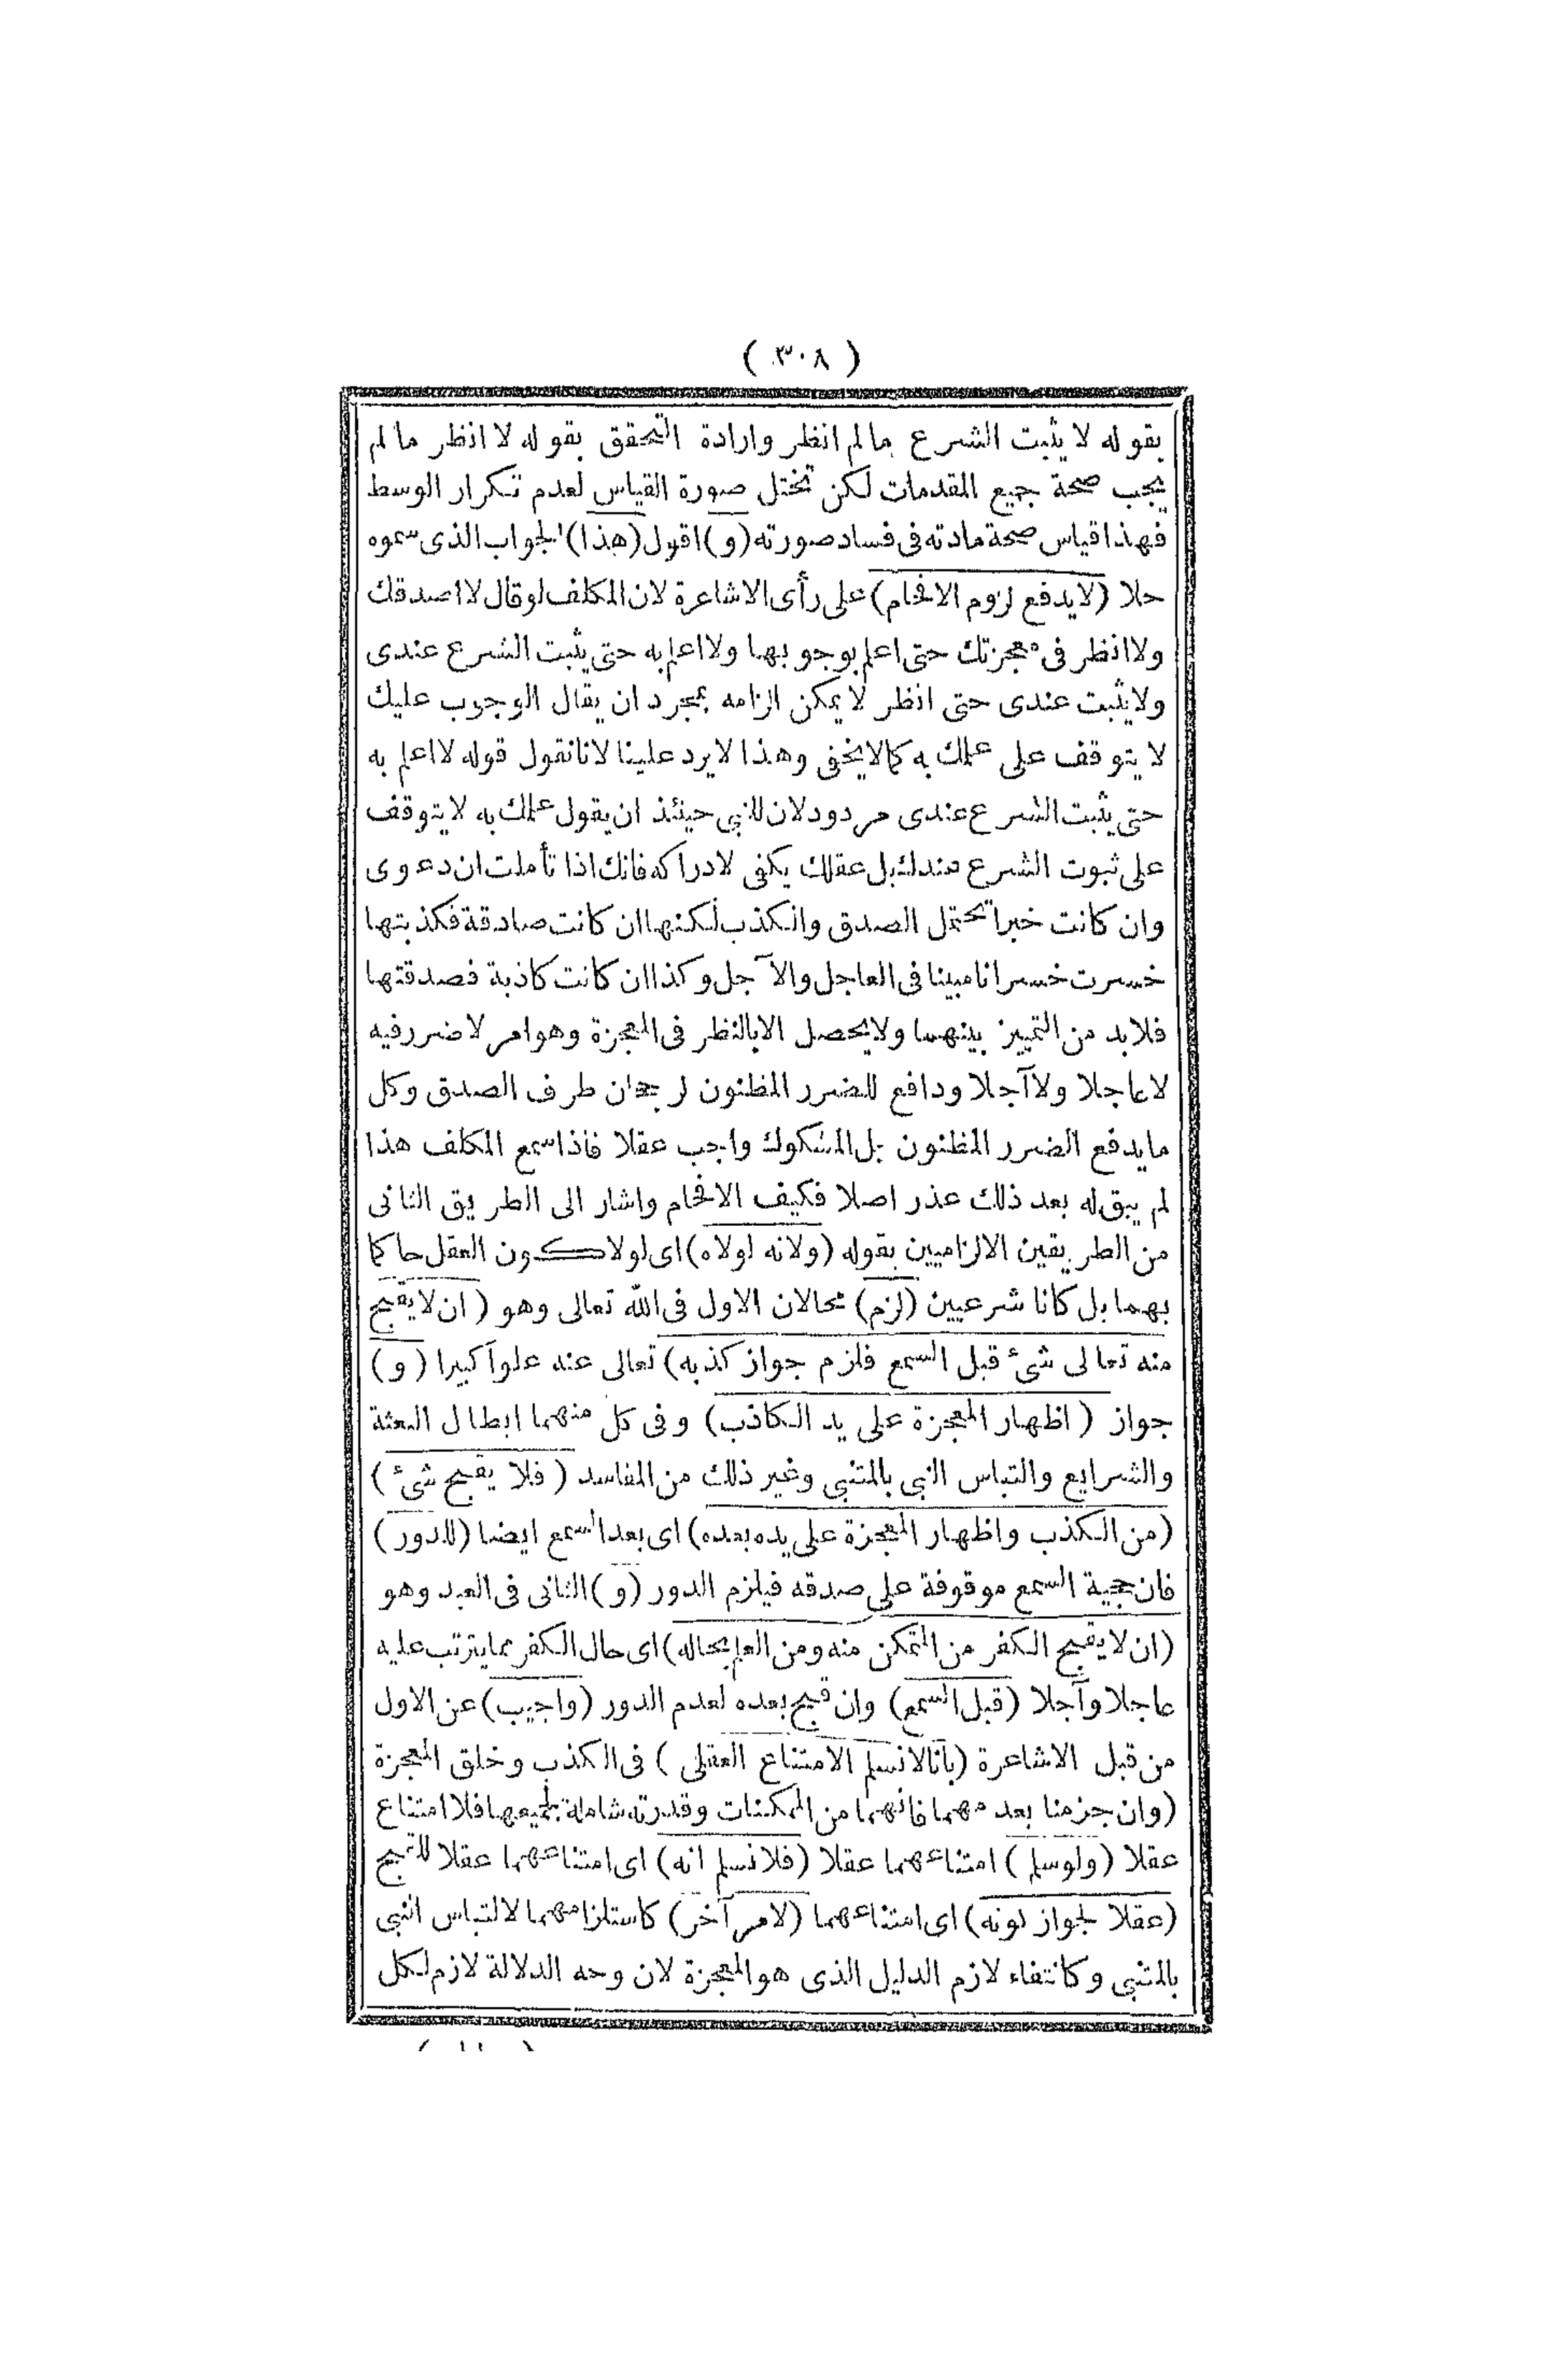 ( ٣٠٨ )
بقوله لا يثبت الشرع مالم انظر وارادة التحقق بقوله لا انظر مالم
يجب صحة جميع المقدمات لكن تختل صورة القياس لعدم تكرار الوسط
فهذا قياس صحة مادته فى فساد صورته (و) اقول (هذا) الجواب الذى سموه
حلا (لايدفع لزوم الافحام) على رأى الاشاعرة لان المكلف لوقال لا اصدقك
ولا انظر فى معجزتك حتى اعلم بوجوبها ولا اعلم به حتى يثبت الشرع عندى
ولايثبت عندى حتى انظر لا يمكن الزامه بمجرد ان يقال الوجوب عليك
لا يتوقف على علمك به كمالايخفى وهذا لايرد علينا لانانقول قوله لا اعلم به
حتى يثبت الشرع عندى مردود لان للنبى حينئذ ان يقول علمك به لايتوقف
على ثبوت الشرع عندك بل عقلك يكفى لادراكه فانك اذا تأملت ان دعوى
وان كانت خبرا تحتمل الصدق والكذب لكنها ان كانت صادقة فكذبتها
خسرت خسرانا مبينا فى العاجل والآجل وكذا ان كانت كاذبة فصدقتها
فلابد من التمييز بينهما ولايحصل الابالنظر فى المعجزة وهو امر لا ضرر فيه
لاعاجلا ولاآجلا ودافع للضرر المظنون لرجحان طرف الصدق وكل
مايدفع الضرر المظنون بل المشكوك واجب عقلا فاذا سمع المكلف هذا
لم يبق له بعد ذلك عذر اصلا فكيف الافحام واشار الى الطريق الثانى
من الطريقين الالزاميين بقوله (ولانه لولاه) اى لولا كون العقل حاكما
بهما بل كانا شرعيين (لزم) محالان الاول فى الله تعالى وهو (ان لايقبح
منه تعالى شئ قبل السمع فلزم جواز كذبه) تعالى عنه علوا كبيرا (و)
جواز (اظهار المعجزة على يد الكاذب) وفى كل منهما ابطال البعثة
والشرايع والتباس النبى بالمتنبى وغير ذلك من المفاسد (فلا يقبح شئ)
(من الكذب واظهار المعجزة على يده بعده) اى بعد السمع ايضا (للدور)
فان حجية السمع موقوفة على صدقه فيلزم الدور (و) الثانى فى العبد وهو
(ان لايقبح الكفر من المتمكن منه ومن العلم بحاله) اى حال الكفر مما يترتب عليه
عاجلا وآجلا (قبل السمع) وان قبح بعده لعدم الدور (واجيب) عن الاول
من قبل الاشاعرة (بانالانسلم الامتناع العقلى) فى الكذب وخلق المعجزة
(وان جزمنا بعدمهما فانهما من الممكنات وقدرته شاملة لجميعها فلا امتناع
عقلا (ولوسلم) امتناعهما عقلا (فلانسلم انه) اى امتناعهما عقلا للقبح
(عقلا لجواز كونه) اى امتناعهما (لامر آخر) كاستلزامهما لالتباس النبى
بالمتنبى وكانتفاء لازم الدليل الذى هو المعجزة لان وجه الدلالة لازم لكل